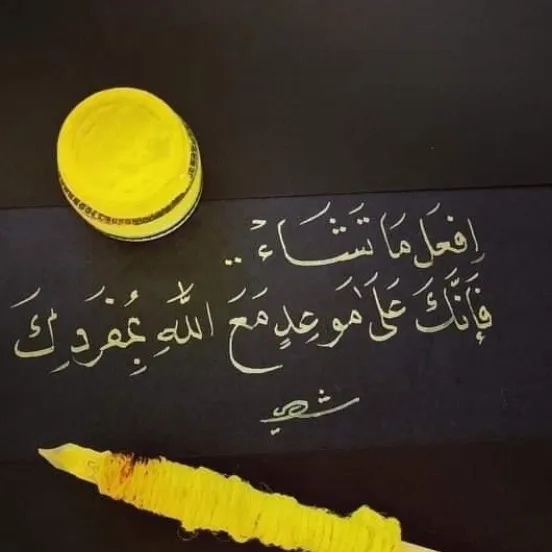 اِفعَل مَا تَشَاءْ ..
فَإنَّكَ عَلَىٰ مَوعِدٍ مَعَ اللّٰهِ بِمُفرَدِكَ